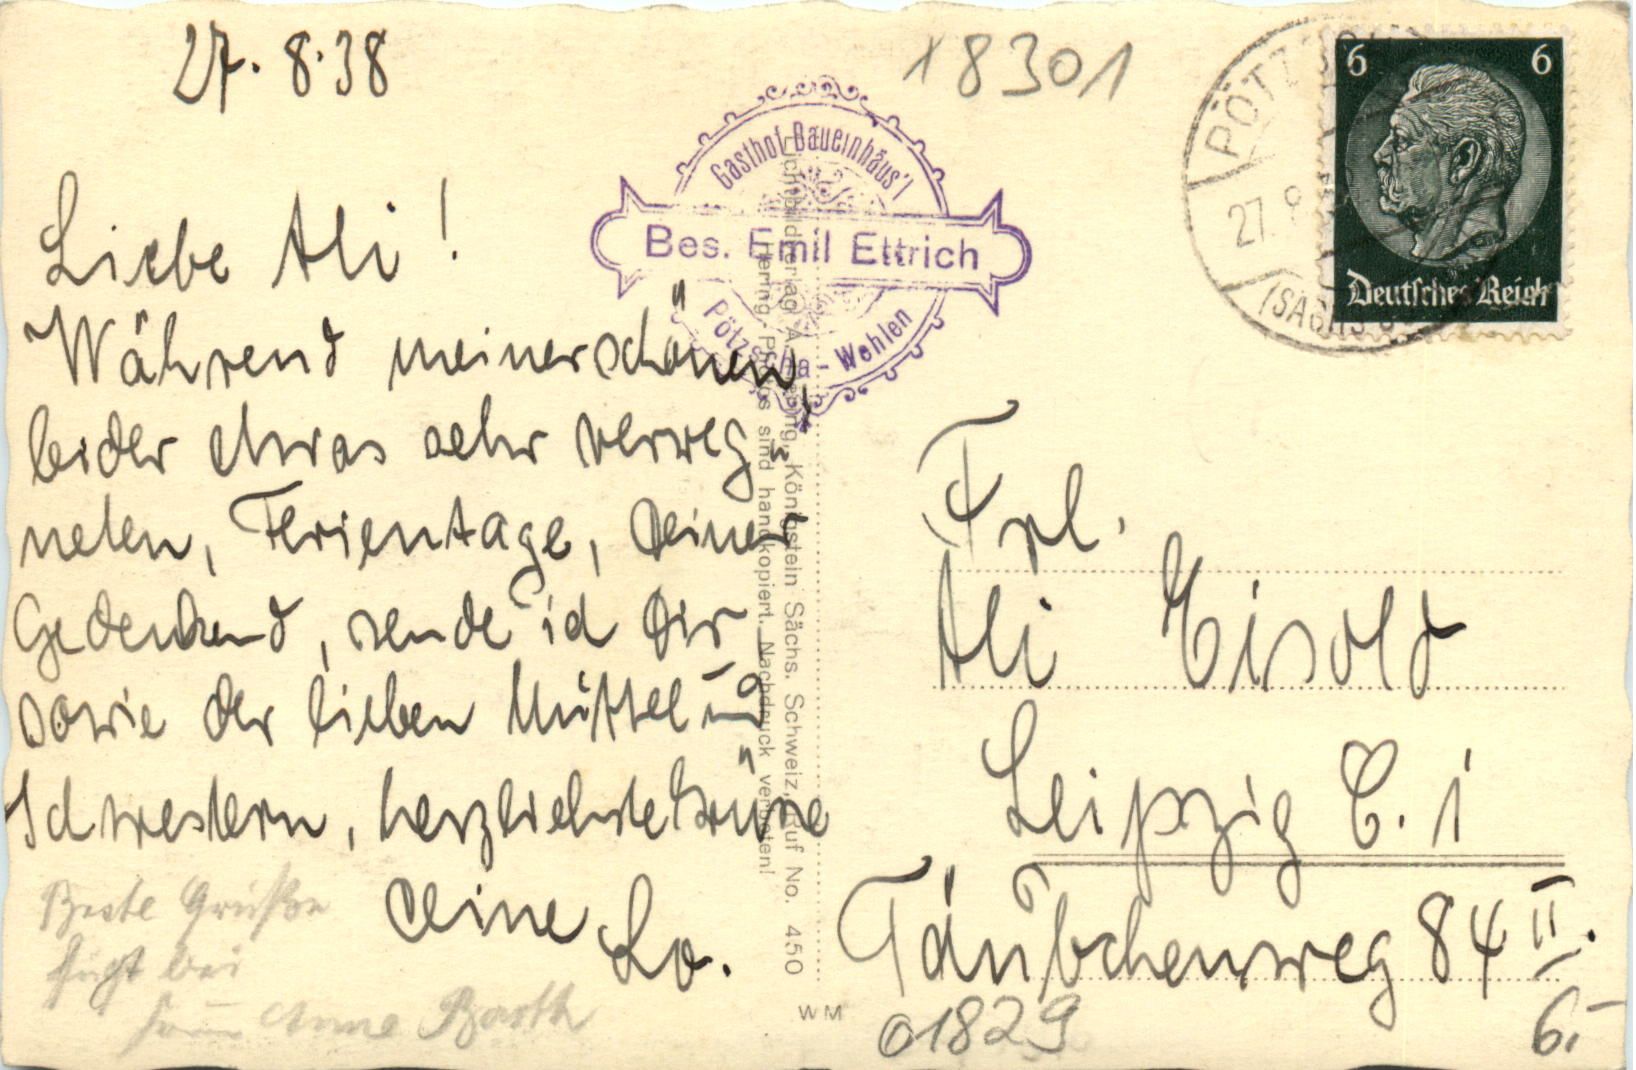 27. 8. 38
18301
Liebe Ali!
Während meiner schönen,
leider etwas sehr verreg-
neten, Ferientage, Deiner
Gedenkend, sende ich Dir
sowie der lieben Muttel und
Schwestern, herzlichste Grüße
Deine Lo.
Beste Grüße
fügt bei
Anne Barth
Gasthof Bauernhäus'l
Bes. Emil Ettrich
Pötzscha-Wehlen
Hering, Königstein Sächs. Schweiz, Ruf No. 450
Hering-Photos sind handkopiert. Nachdruck verboten!
WM
PÖTZSCHA
27. 8
(SÄCHS
6 6
Deutsches Reich
Frl.
Ali Eisold
Leipzig C. 1
Täubchenweg 84 II.
01829
6.-